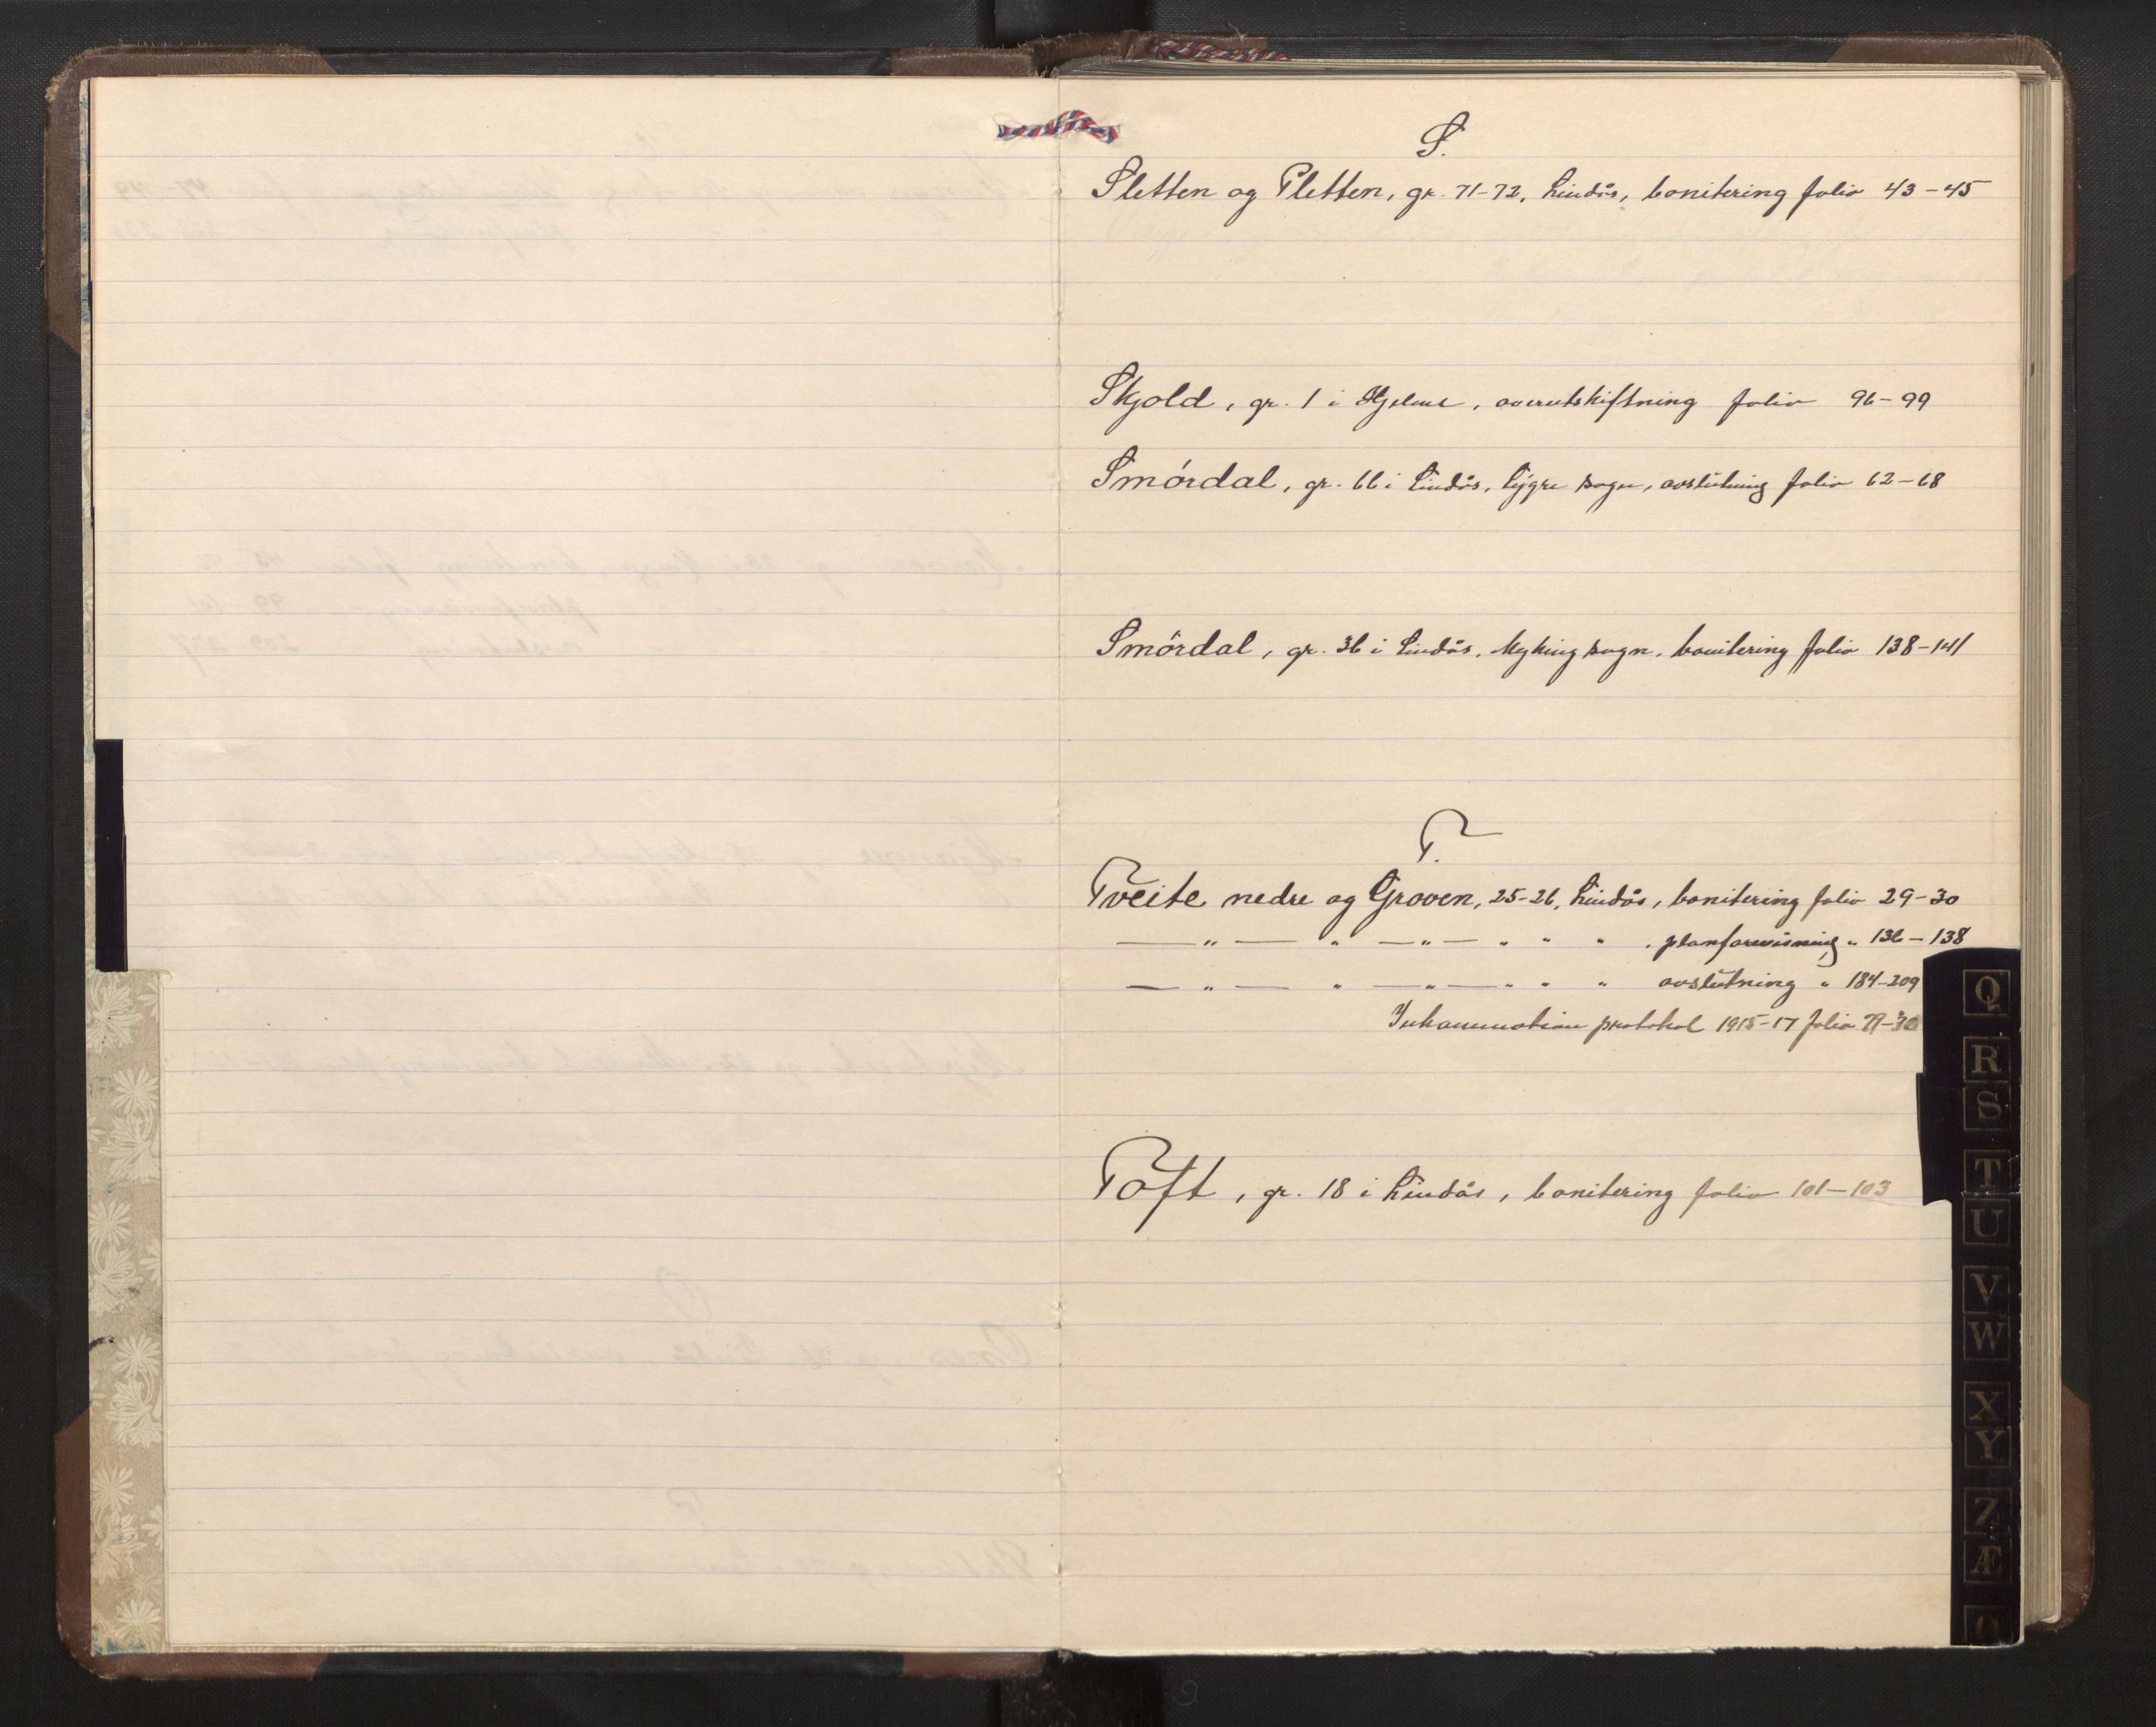 S.
Sletten og Pletten, gr. 71-72, Lindås, bonitering folio 43-45
Skjold, gr. 1 i Hjelme, overutskiftning folio 96-99
Smördal, gr. 66 i Lindås, Lygre sogn, avslutning folio 62-68
Smördal, gr. 36 i Lindås, Myking sogn, bonitering folio 138-141
T.
Tveite nedre og Groven, 25-26, Lindås, bonitering folio 29-30
— " — " — " — " " " , planforevisning " 136-138
— " — " — " — " " " avslutning " 184-209
protokol 1915-17 folio
Toft, gr. 18 i Lindås, bonitering folio 101-103
Q
R
S
T
U
V
W
X
Y
Z
Æ